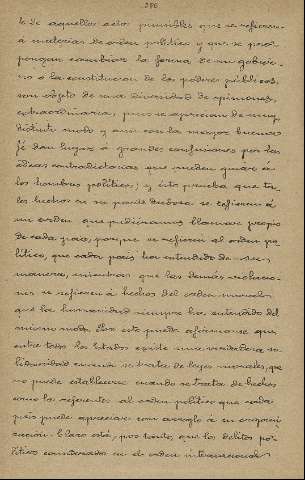 286
te de aquellos actos punibles que se refieren
á materias de orden político y que se pro-
pongan cambiar la forma de un gobier-
no ó la constitucion de los poderes públicos,
son objeto de una diversidad de opiniones,
extraordinaria, pues se aprecian de muy
distinto modo y aun con la mayor buena
fé dan lugar á grandes confusiones por las
ideas contradictorias que suelen guiar á
los hombres políticos; y esto prueba que ta-
les hechos en su parte dudosa se refieren á
un orden que pudieramos llamar propio
de cada pais, porque se refieren al orden po-
lítico, que cada pais ha entendido de su
manera, mientras que las demás
se refieren á hechos del orden
que la humanidad siempre ha entendido del
mismo modo. Por esto puede afirmarse que
entre todos los Estados existe una verdadera so-
lidaridad cuando se trata de leyes morales, que
no puede establecerse cuando se trata de hechos
como los referentes al orden político que cada
pais puede apreciar con arreglo á su organi-
zación. Claro está, por tanto, que los delitos po-
líticos considerados en el orden internacional